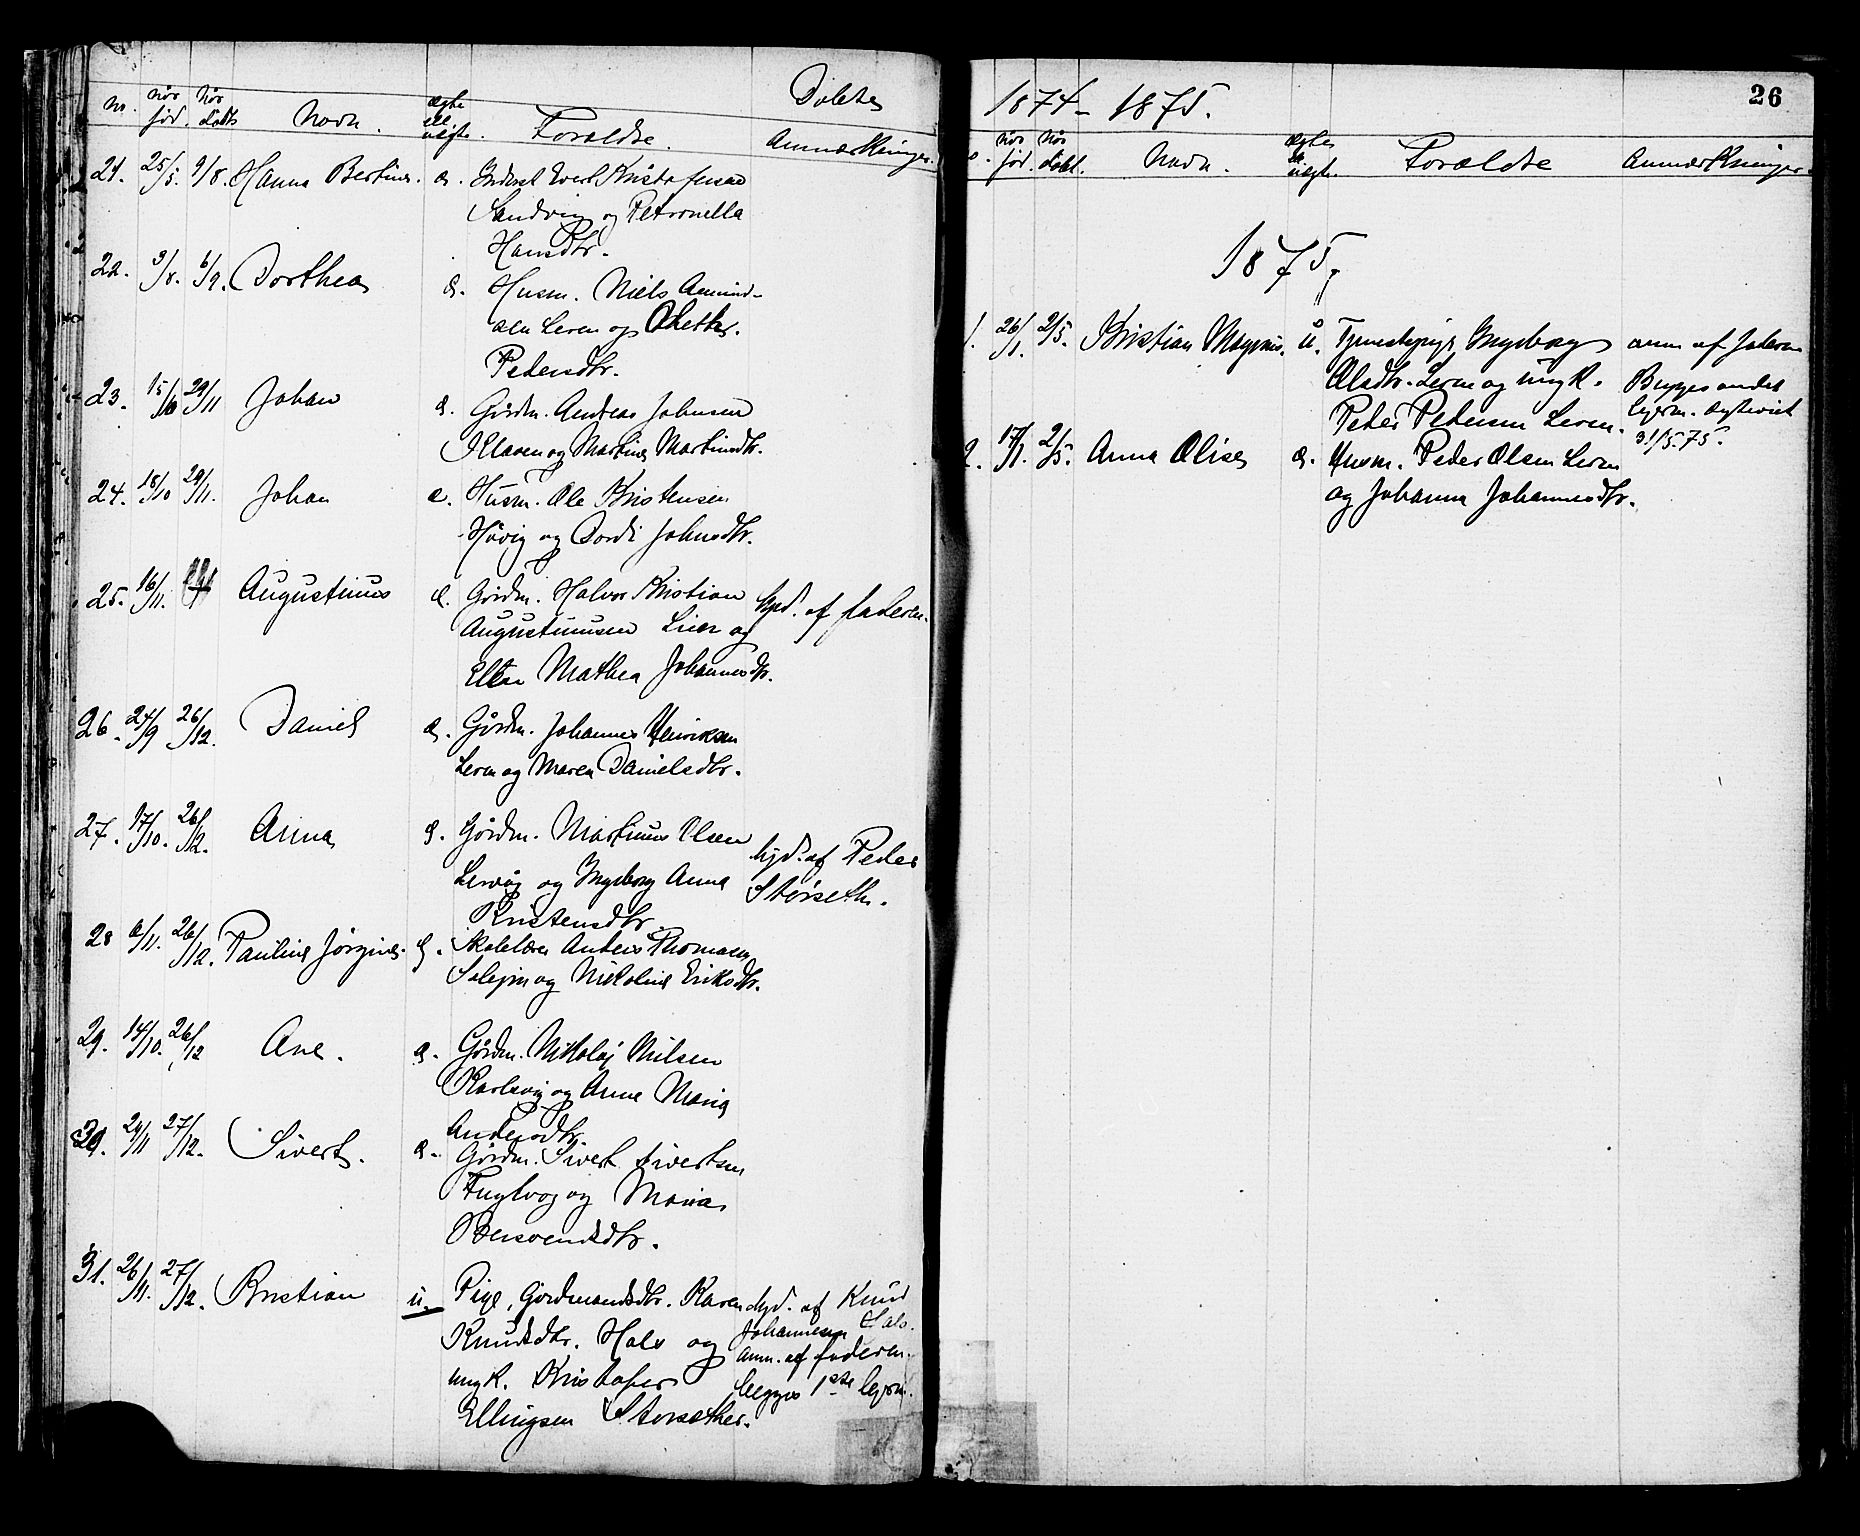 Døbte
No. Når fød. Når døbt. Navn. ægte ell. uægte. Forældre. Anmærkninger.
21. 25/5. 9/8. Hanna Bertine. æ. Evert Kristofersen
Sandvig og Petronella
Hansdtr.
22. 3/8. 6/9. Dorthea æ. Husm. Niels Amund-
sen Leren og
Pedersdtr.
23. 15/10 29/11 Johan æ. Gårdm. Andreas Johnsen
og Martine Martinsdtr.
24. 18/10 29/11. Johan æ. Husm. Ole Kristensen
Høvig og Dordi Johnsdtr.
25. 16/11. Augustinus æ. Gårdm. Halvor Kristian hjd. af faderen.
Augustinusen Lien og
Ellen Mathea Johannesdtr.
26. 24/9 26/12. Daniel æ. Gårdm. Johannes Henriksen
Leren og Maren Danielsdtr.
27. 17/10. 26/12. Anna æ. Gårdm. Martinus Olsen hjd. af Peder
Lervåg og Ingeborg Anna Størseth.
Kristensdtr.
28 6/11. 26/12. Pauline Jørgine. æ. Skolelærer Anders Thomasen
og Nikoline Eriksdtr.
29. 14/10. 26/12 Ane. æ. Gårdm. Nikolaj Nilsen
Karlsvig og Anne Maria
Andersdtr.
30. 29/11 27/12. Sivert. æ. Gårdm. Sivert Sivertsen
Fuglvog og Maria
Bersvendsdtr.
31. 26/11. 27/12. Kristian u. Pige, Gårdmandsdtr. Karen hjd. af Knud
Knudsdtr. Hals og Johannesen Hals.
ungk. Kristofer anm. af faderen.
Ellingsen Storsæther. begges 1ste lejerm.
1874-1875.
26
No. Når fød. Når døbt. Navn. ægte ell. uægte. Forældre Anmærkninger.
1875.
1. 26/1. 2/5. Kristian Magnus. u. Tjenestepige Ingeborg anm. af faderen
Olsdtr. Leren og ungk. Begges andet
Peder Pedersen Leren. lejerm.
31/5.75.
2. 17/1. 2/5. Anna Olise æ. Husm. Peder Olsen Leren
og Johanna Johannesdtr.